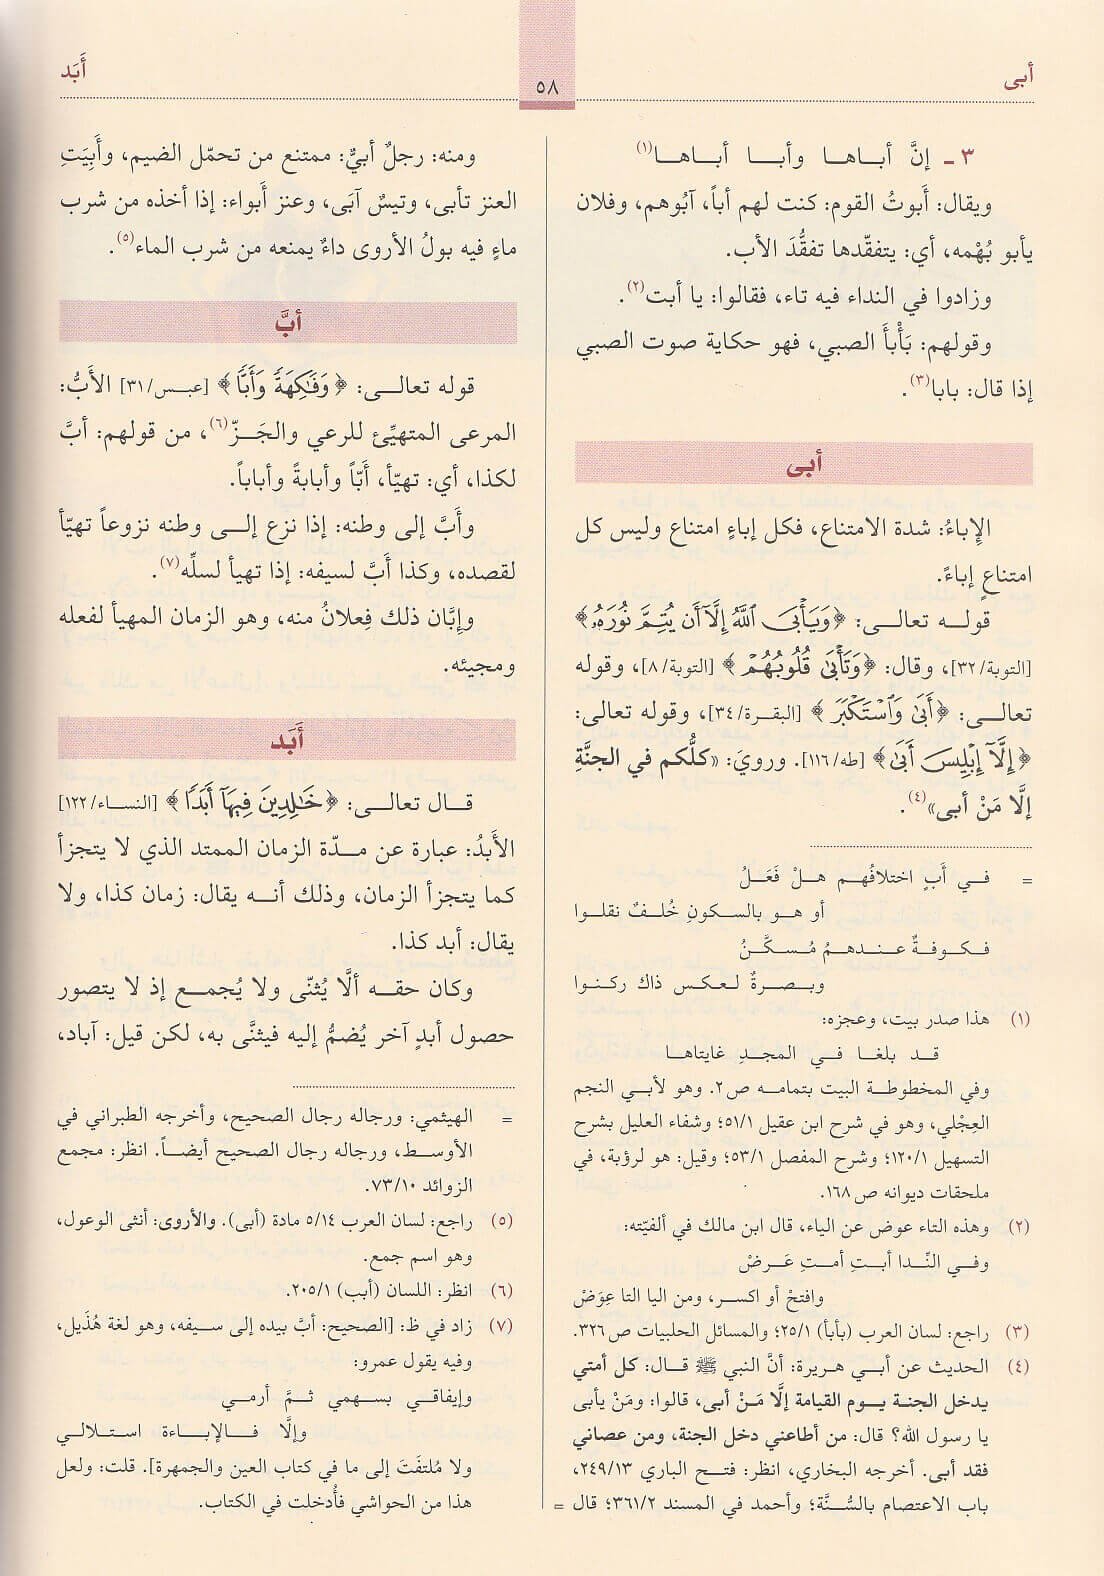 أبى
٥٨
أَبَد
٣ ـ إنَّ أبـاهـا وأبـا أبـاهـا(١)
ويقال: أَبوتُ القوم: كنت لهم أباً، آبُوهم، وفلان
يأبو بُهْمه، أي: يتفقّدها تفقُّدَ الأب.
وزادوا في النداء فيه تاء، فقالوا: يا أبت(٢).
وقولهم: بَأْبأَ الصبي، فهو حكاية صوت الصبي
إذا قال: بابا(٣).
أبى
الإباءُ: شدة الامتناع، فكل إباءٍ امتناع وليس كل
امتناعٍ إباءً.
قولـه تعالـى: ﴿وَيَأْبَى اللَّهُ إِلَّا أَن يُتِمَّ نُورَهُ﴾
[التوبة/٣٢]، وقال: ﴿وَتَأْبَى قُلُوبُهُمْ﴾ [التوبة/٨]، وقوله
تعالـى: ﴿أَبَى وَاسْتَكْبَرَ﴾ [البقـرة/٣٤]، وقوله تعالى:
﴿إِلَّا إِبْلِيسَ أَبَى﴾ [طه/١١٦]. ورويَ: «كلُّكم في الجنَّةِ
إلَّا مَنْ أبى»(٤).
= فـي أَبٍ اختلافُهـم هلْ فَعَلُ
أو هو بالسكونِ خُلفٌ نقلـوا
فـكـوفةٌ عنـدهـمُ مُسـكَّـنُ
وبـصـرةٌ لـعـكـس ذاك ركـنـوا
(١) هذا صدر بيت، وعجزه:
قـد بلغـا فـي المجـدِ غايتاهـا
وفي المخطوطـة البيت بتمامـه ص٢. وهو لأبي النجم
العِجْلي، وهو في شرح ابن عقيل ٥١/١؛ وشفاء العليل بشرح
التسهيل ١٢٠/١؛ وشرح المفصل ٥٣/١؛ وقيل: هو لرؤبة، في
ملحقات ديوانه ص١٦٨.
(٢) وهذه التاء عوض عن الياء، قال ابن مالك في ألفيّته:
وفـي النِّـدا أبـتِ أمـتِ عَـرضْ
وافتحْ أو اكسر، ومن اليا التا عِوَضْ
(٣) راجع: لسان العرب (بأبأ) ٢٥/١؛ والمسائل الحلبيات ص٣٢٦.
(٤) الحديث عن أبـي هريرة: أنَّ النبي ﷺ قـال: كل أمتي
يدخل الجنة يـوم القيامة إلَّا مَـنْ أبى، قالوا: ومَنْ يأبى
يا رسول الله؟ قال: من أطاعني دخل الجنة، ومن عصاني
فقد أبى. أخرجه البخاري، انظر: فتـح الباري ٢٤٩/١٣،
باب الاعتصام بالسُّـنَّة؛ وأحمد في المسند ٣٦١/٢؛ قال =
ومنه: رجلٌ أبيٌّ: ممتنع من تحمّل الضيم، وأَبِيَتِ
العنز تأبى، وتيسٌ آبَى، وعنز أَبواء: إذا أخذه من شرب
ماءٍ فيه بولُ الأروى داءٌ يمنعه من شرب الماء(٥).
أبَّ
قوله تعالـى: ﴿وَفَاكِهَةً وَأَبًّا﴾ [عبـس/٣١] الأَبُّ:
المرعى المتهيِّئ للرعي والجَـزّ(٦)، من قولهم: أبَّ
لكذا، أي: تهيّأ، أَبّاً وأبابةً وأباباً.
وأَبَّ إلى وطنه: إذا نزع إلـى وطنه نزوعاً تهيّأ
لقصده، وكذا أَبَّ لسيفه: إذا تهيأ لسلِّه(٧).
وإبَّان ذلك فِعلانُ منه، وهو الزمان المهيأ لفعله
ومجيئه.
أَبَد
قـال تعالى: ﴿خَالِدِينَ فِيهَا أَبَدًا﴾ [النساء/١٢٢]
الأَبدُ: عبارة عن مـدّة الزمان الممتد الذي لا يتجزأ
كما يتجزأ الزمان، وذلك أنـه يقال: زمان كذا، ولا
يقال: أبد كذا.
وكان حقـه ألَّا يُثنّى ولا يُجمـع إذ لا يتصور
حصول أبدٍ آخر يُضمُّ إليه فيثنَّى به، لكن قيل: آباد،
= الهيثمي: ورجاله رجال الصحيح، وأخرجه الطبراني في
الأوسـط، ورجاله رجال الصحيح أيضـاً. انظر: مجمع
الزوائد ٧٣/١٠.
(٥) راجع: لسان العرب ٥/١٤ مادة (أبى). والأروى: أنثى الوعول،
وهو اسم جمع.
(٦) انظر: اللسان (أبب) ٢٠٥/١.
(٧) زاد في ظ: [الصحيح: أبَّ بيده إلى سـيفه، وهو لغة هُذَيل،
وفيه يقول عمرو:
وإيفاقـي بسـهمي ثـمَّ أرمي
وإلَّا فـالإباءة اسـتلالـي
ولا مُلتفَتَ إلى ما في كتاب العين والجمهرة]. قلت: ولعل
هذا من الحواشي فأُدخلت في الكتاب.